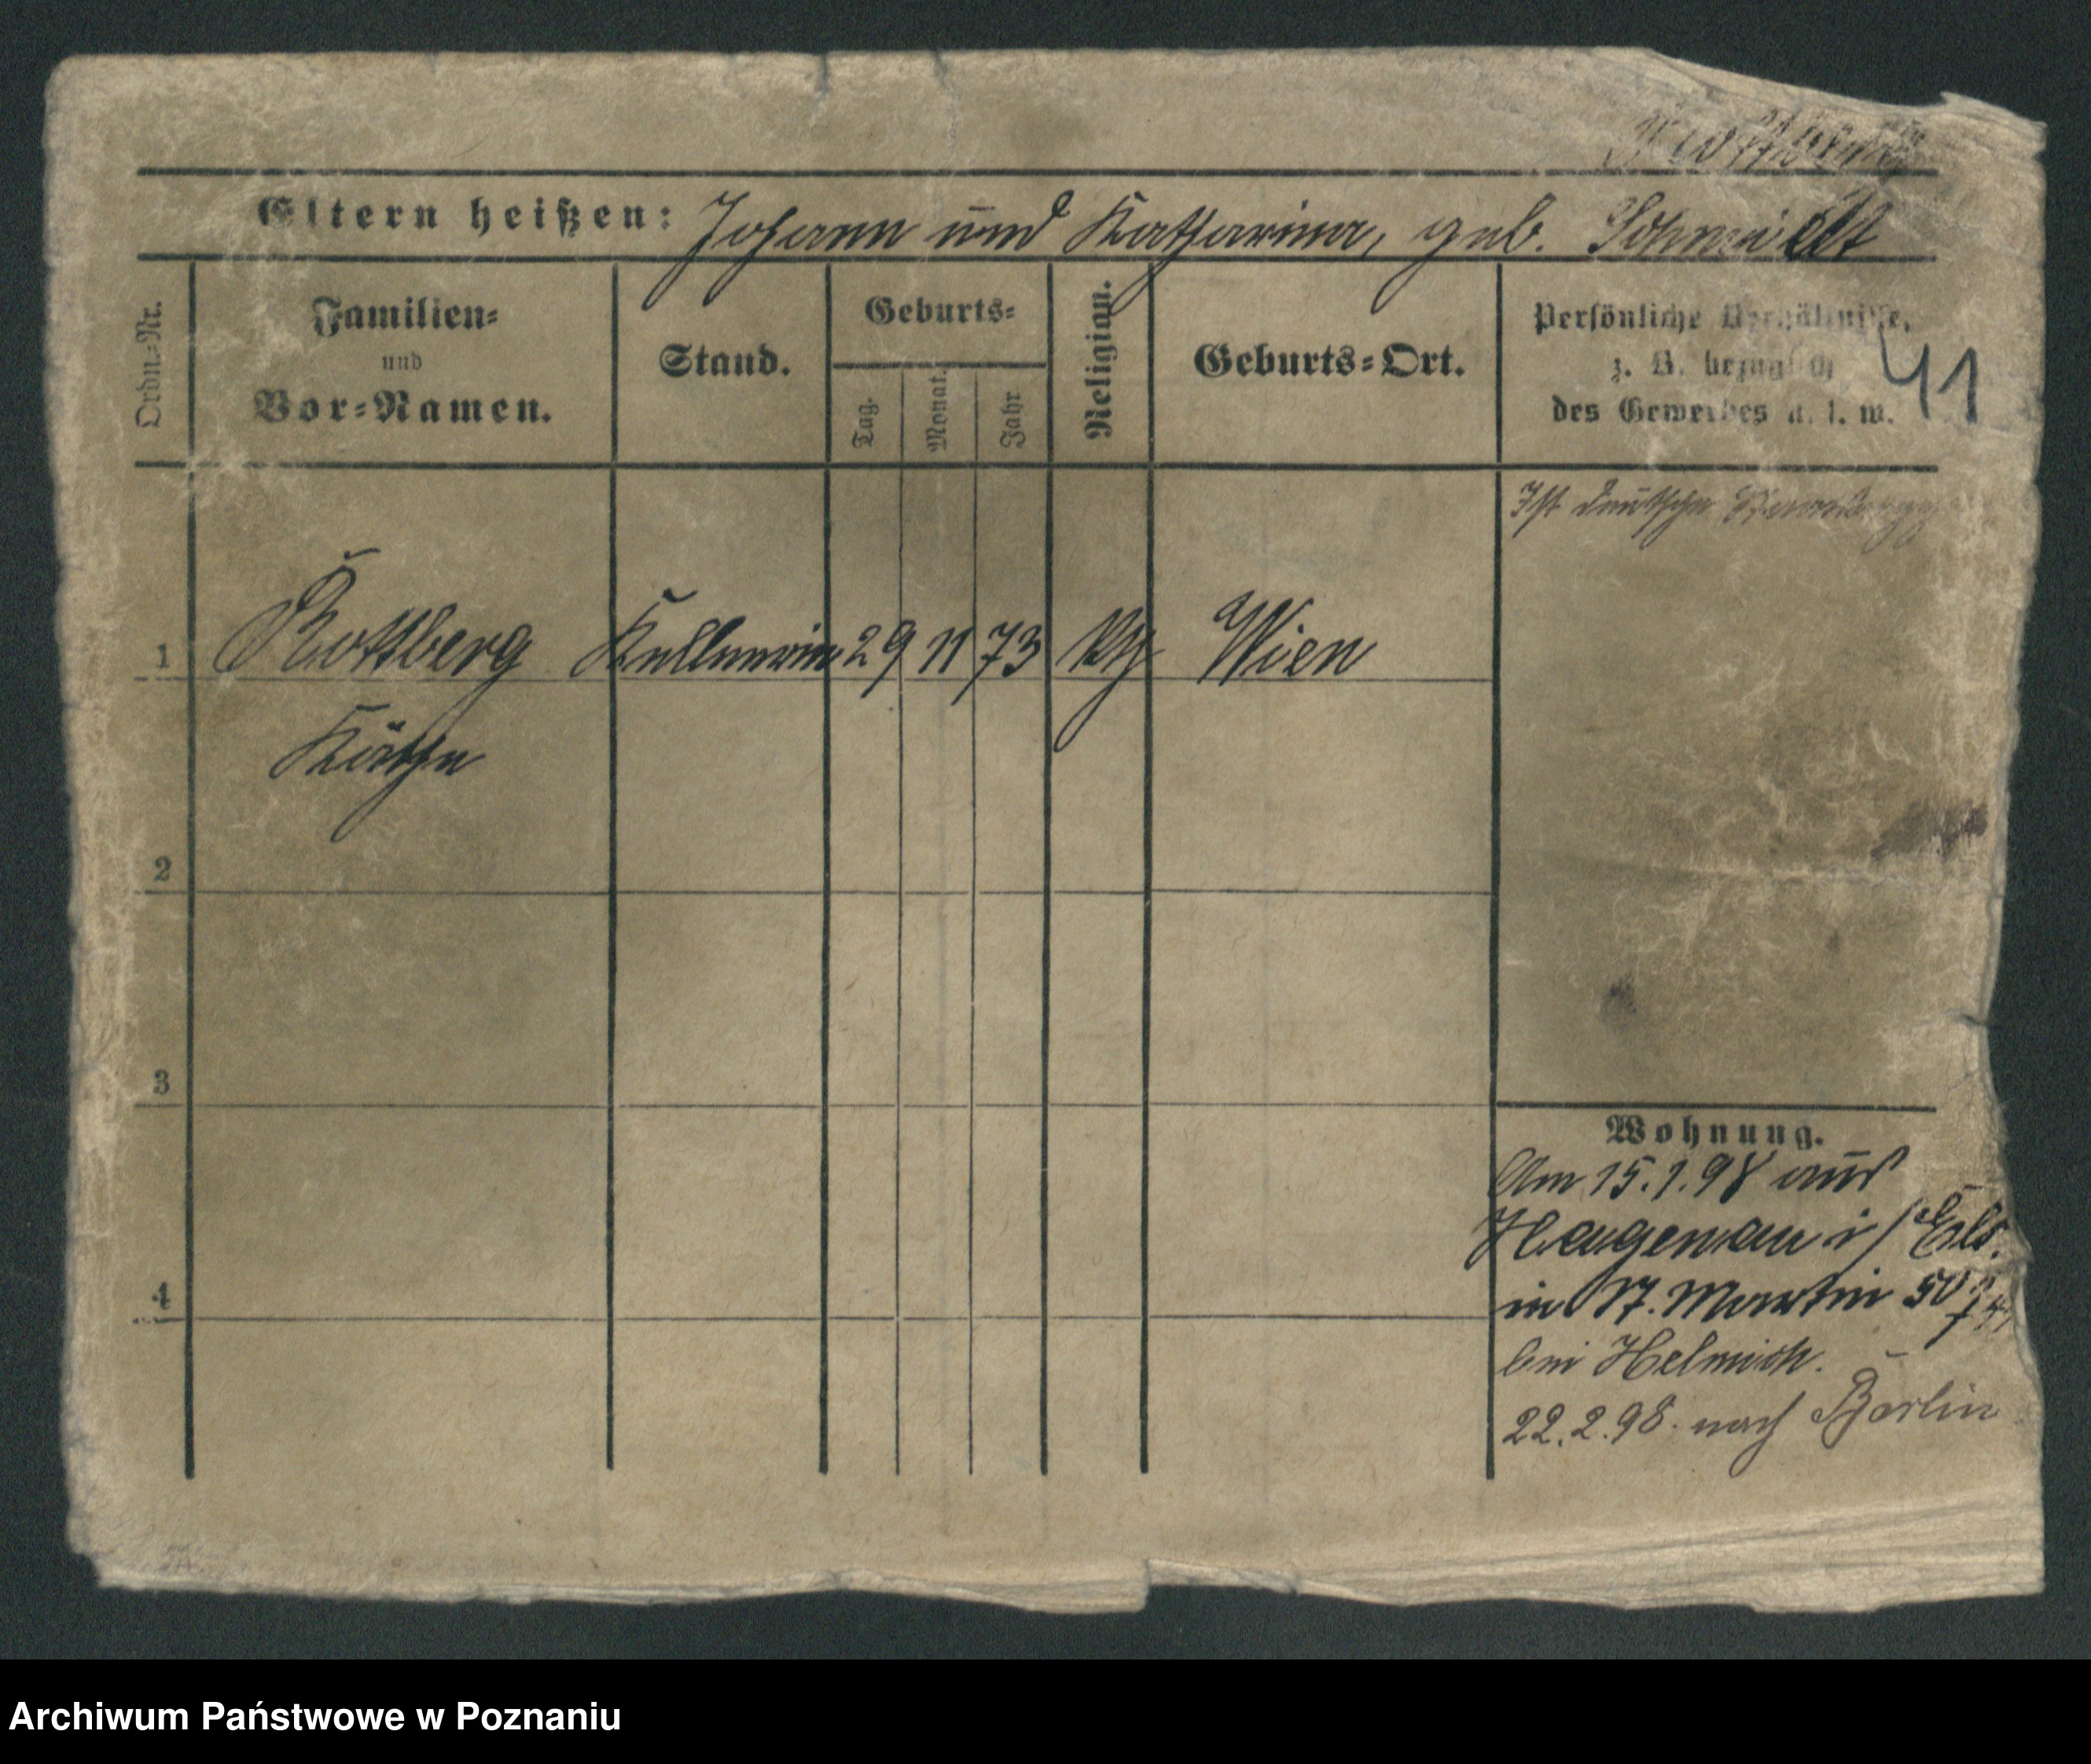 Eltern heißen: Johann und Katharina, geb. Schmidt
Ordn.-Nr.
Familien-
und
Vor-Namen.
Stand.
Geburts-
Tag.
Monat.
Jahr
Religion.
Geburts-Ort.
Persönliche Verhältnisse,
z. B. bezüglich
des Gewerbes u. s. w.
41
Ist deutsche
1 Rottberg Kellnerin 29 11 73 kth Wien
Käthe
2
3
4
Wohnung.
Am 15.1.98 aus
Hagenau i/Els.
in St. Martin 50
bei Helmich.
22.2.98. nach Berlin
Archiwum Państwowe w Poznaniu